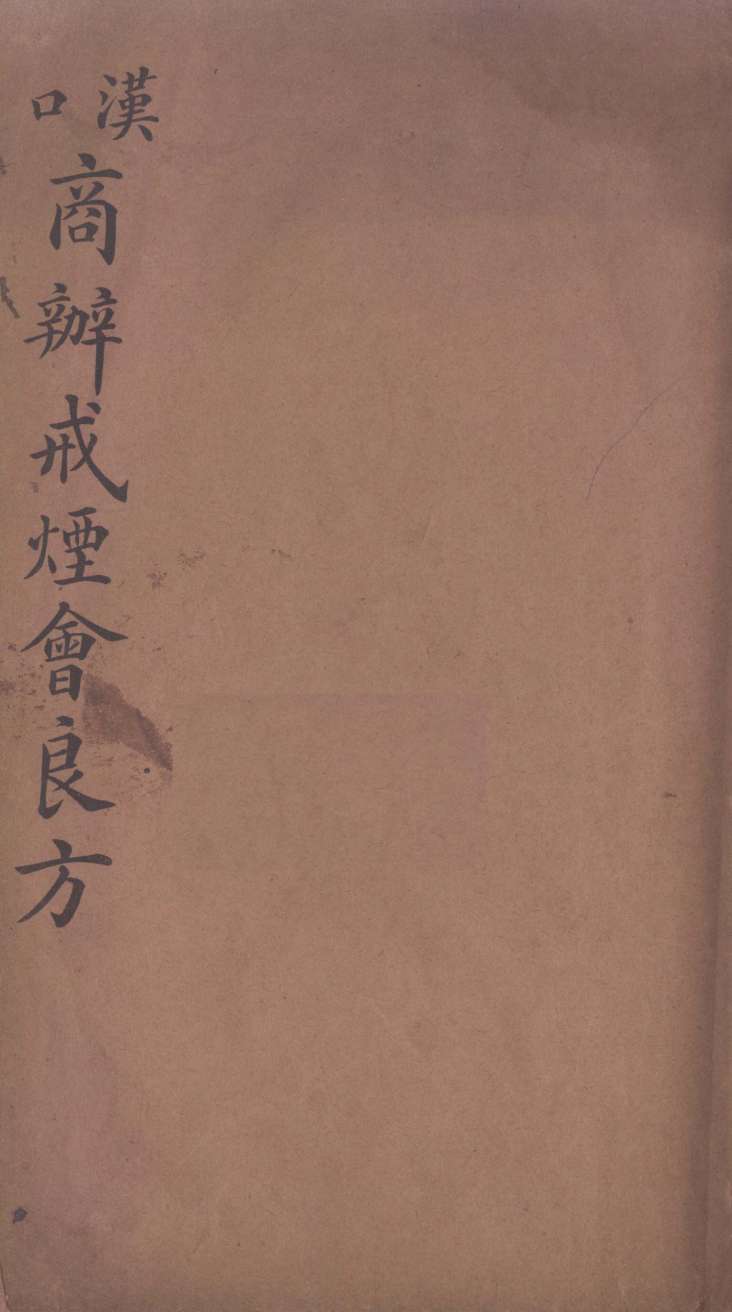 漢口商辦戒煙會良方